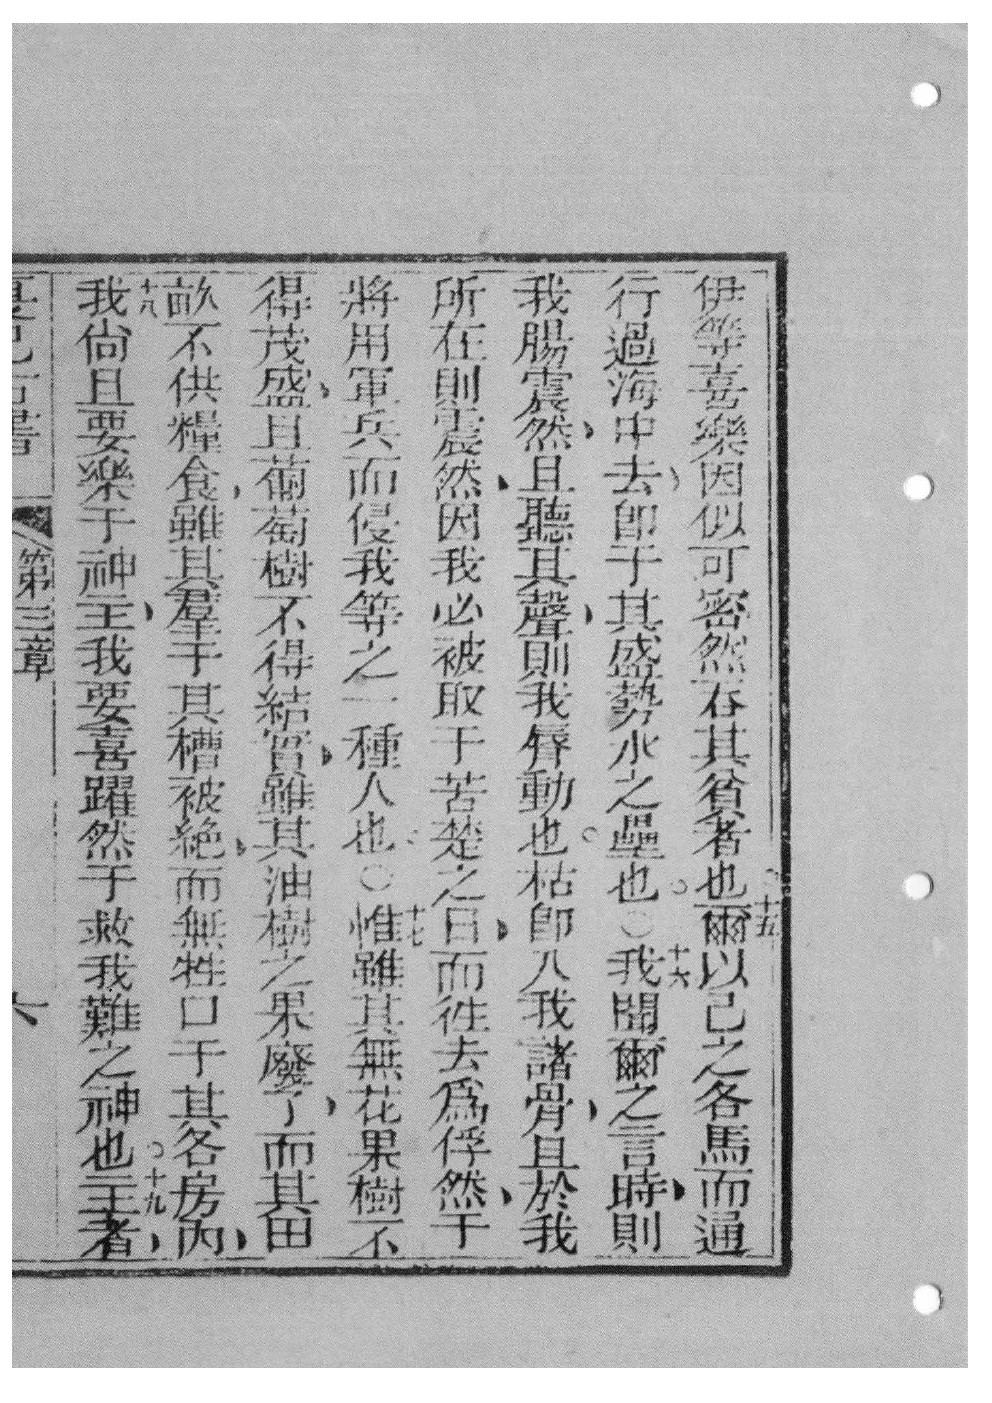 伊等喜樂因似可密然吞其貧者也○十五爾以己之各馬而通
行過海中去、卽于其盛勢水之壘也。○十六我聞爾之言時、則
我腸震然、且聽其聲、則我唇動也。枯卽入我諸骨、且於我
所在則震然、因我必被取于苦楚之日、而徃去爲俘然、于
將用軍兵而侵我等之一種人也。○十七惟雖其無花果樹不
得茂盛、且葡萄樹不得結實、雖其油樹之果廢了、而其田
畝不供糧食、雖其羣于其槽被絕、而無牲口于其各房內、
十八我尙且要樂于神王、我要喜躍然于救我難之神也。十九主者、
第三章
六